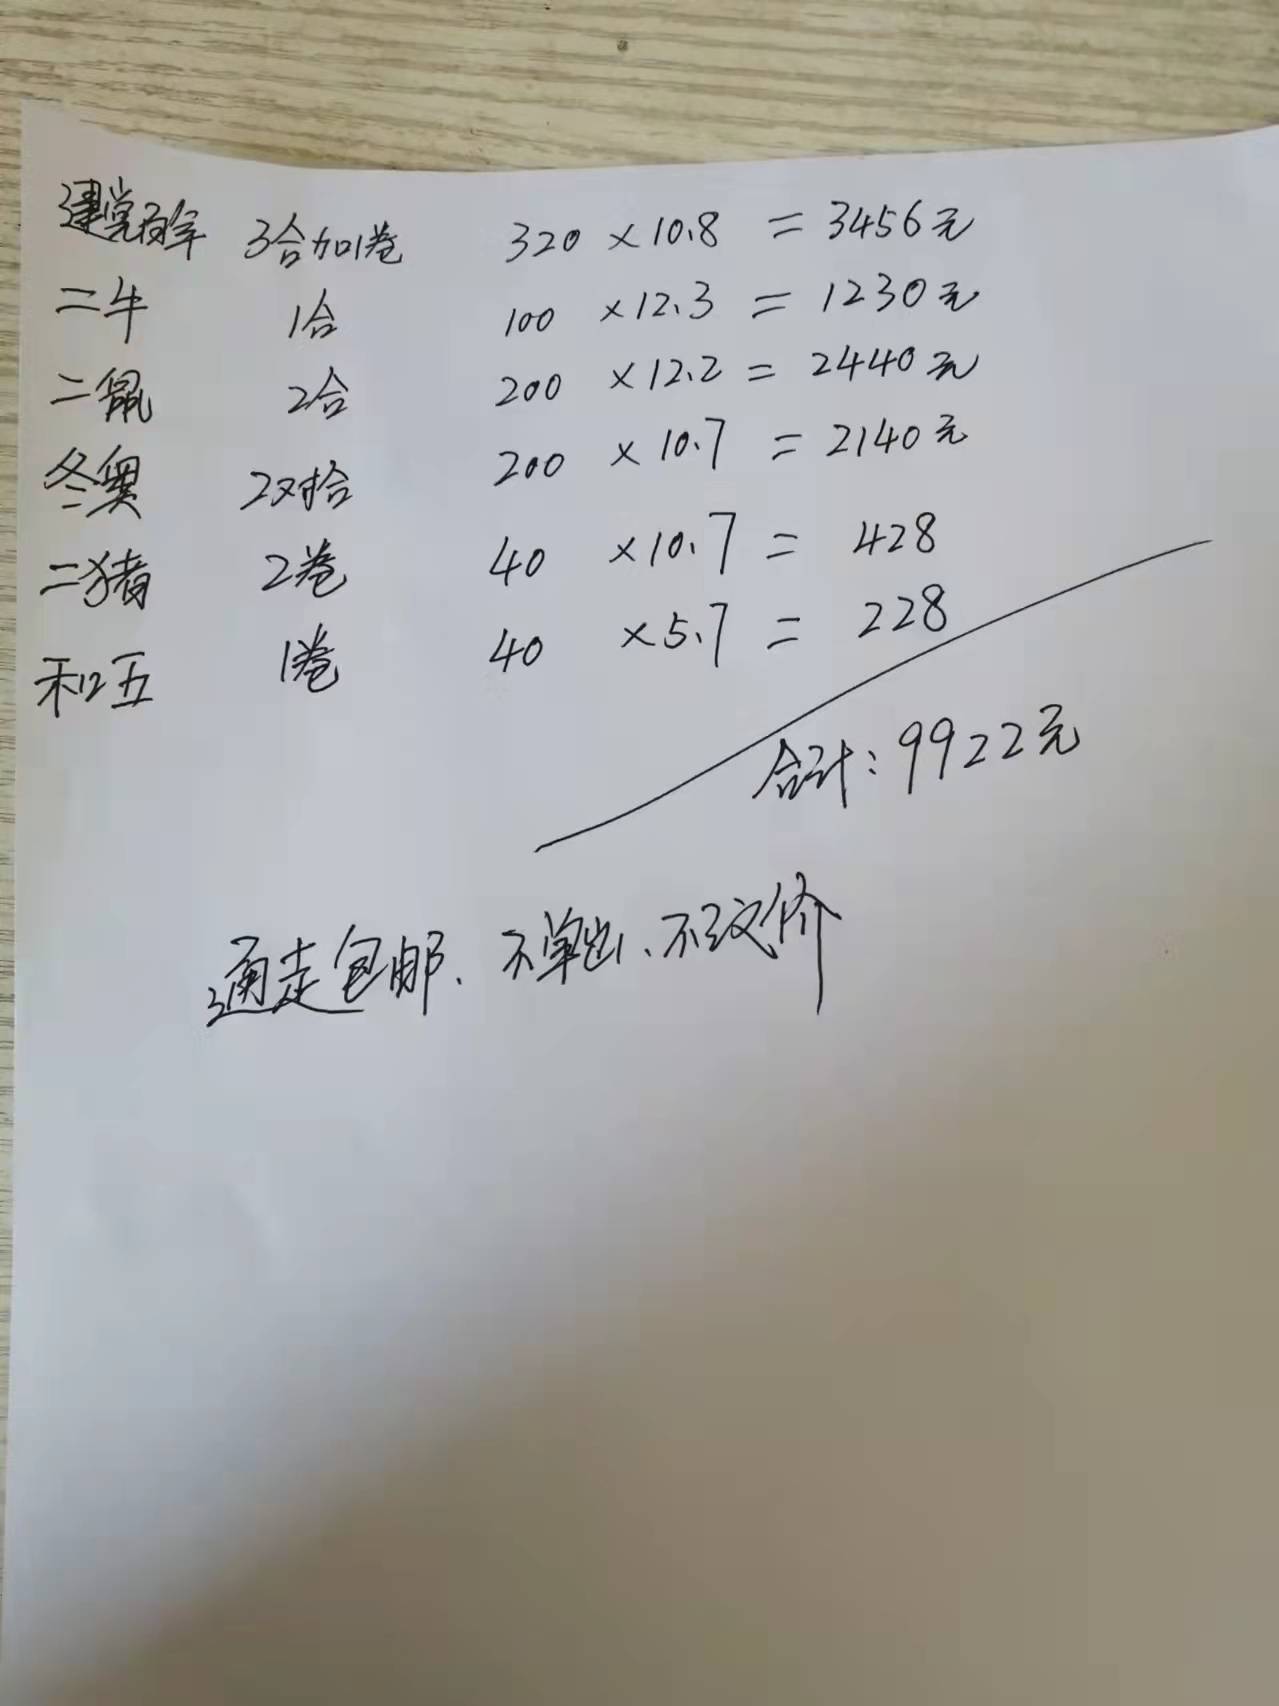 建党百年 3合加1卷 320 × 10.8 = 3456元
二牛 1合 100 × 12.3 = 1230元
二鼠 2合 200 × 12.2 = 2440元
冬奥 2对合 200 × 10.7 = 2140元
二猪 2卷 40 × 10.7 = 428
和五 1卷 40 × 5.7 = 228
合计: 9922元
通走包邮. 不单出、不议价